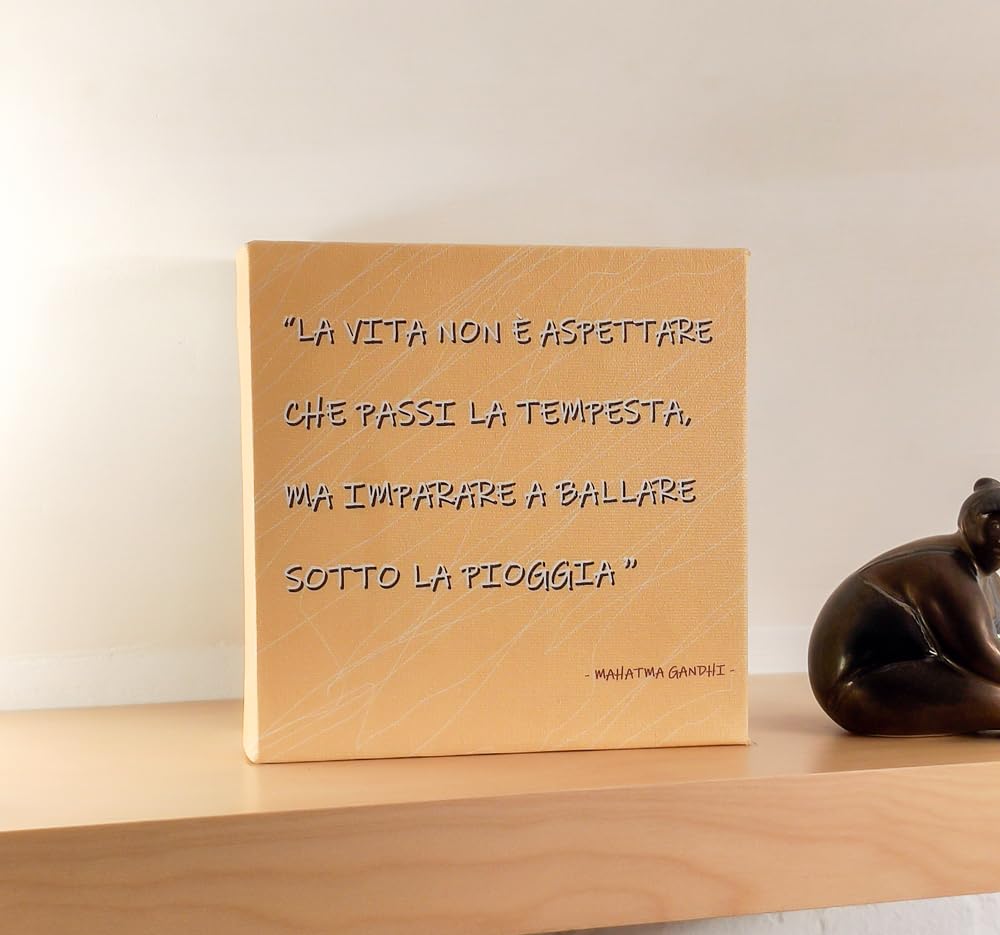 “LA VITA NON È ASPETTARE
CHE PASSI LA TEMPESTA,
MA IMPARARE A BALLARE
SOTTO LA PIOGGIA ”
- MAHATMA GANDHI -